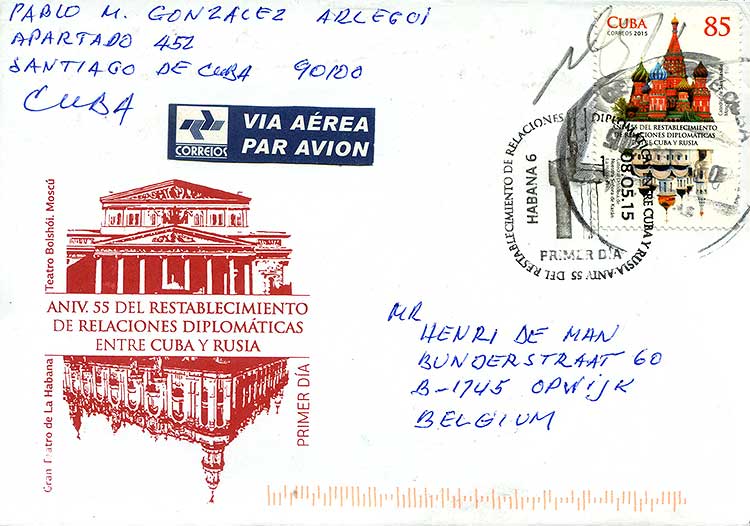 PABLO M. GONZALEZ ARLEGOI
APARTADO 452
SANTIAGO DE CUBA 90100
CUBA
CORREIOS
VIA AÉREA
PAR AVION
CUBA 85
CORREOS 2015
ANIV. 55 DEL RESTABLECIMIENTO
DE RELACIONES DIPLOMÁTICAS
ENTRE CUBA Y RUSIA
ANIV. 55 DEL RESTABLECIMIENTO DE RELACIONES DIPLOMÁTICAS ENTRE CUBA Y RUSIA
HABANA 6
08.05.15
PRIMER DÍA
Teatro Bolshói. Moscú
ANIV. 55 DEL RESTABLECIMIENTO
DE RELACIONES DIPLOMÁTICAS
ENTRE CUBA Y RUSIA
Gran Teatro de La Habana
PRIMER DÍA
MR
HENRI DE MAN
BUNDERSTRAAT 60
B-1745 OPWIJK
BELGIUM